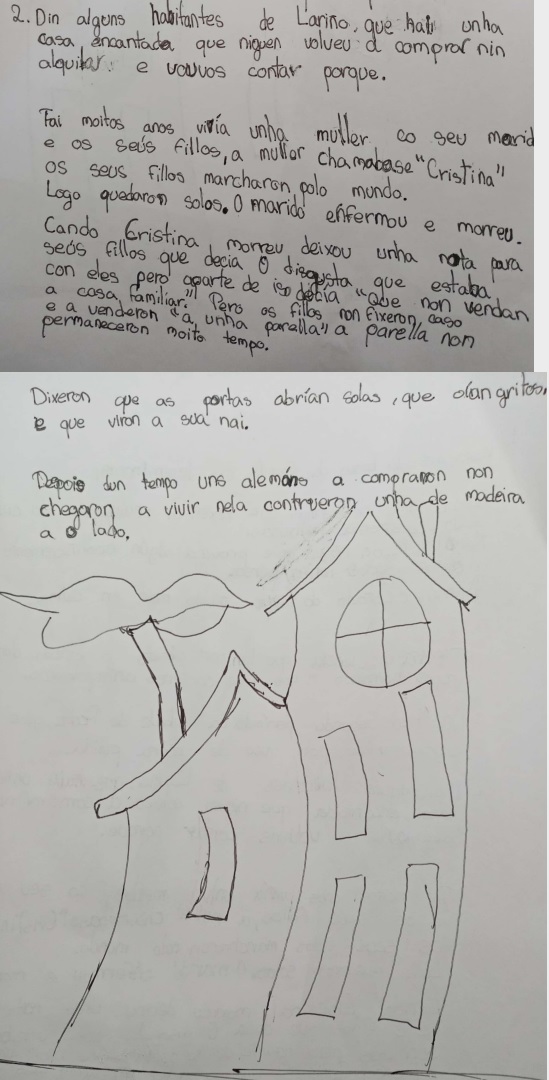 2. Din alguns habitantes de Lariño, que hai unha
casa encantada que niguen volveu a comprar nin
alquilar. e vouvos contar porque.
Fai moitos anos vivía unha muller co seu marid
e os seús fillos, a muller chamabase "Cristina"
os seus fillos marcharon polo mundo.
Logo quedaron solos. O marido enfermou e morreu.
Cando Cristina morreu deixou unha nota para
seús fillos que decia O disgusta que estaba
con eles pero aparte de iso decia "Que non vendan
a casa familiar." Pero os fillos non fixeron caso
e a venderon "a unha parella" a parella non
permaneceron moito tempo.
Dixeron que as portas abrían solas, que oían gritos,
e que viron a sua nai.
Depois dun tempo uns alemáns a compraron non
chegaron a vivir nela contrueron unha de madeira
a o lado.